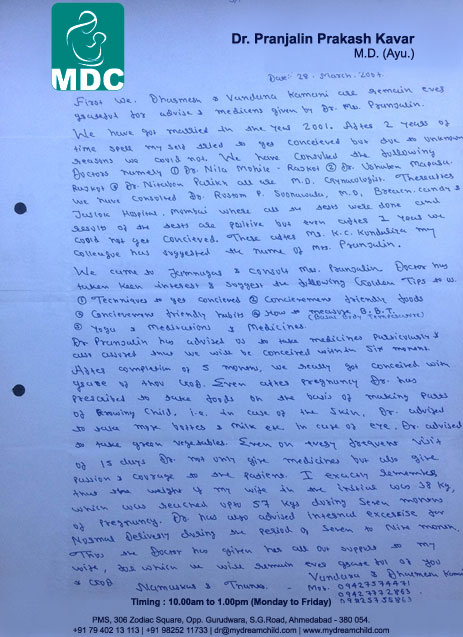 MDC
Dr. Pranjalin Prakash Kavar
M.D. (Ayu.)
Date: 28 - March, 2007
First we, Dharmesh & Vandana Kamani are remain ever
grateful for advise & medicens given by Dr. Ms. Pranjalin.
We have got married in the year 2001. After 2 years of
time spell my self stated to get conceieved but due to unknown
reasons we could not. We have consulted the following
Doctors namely ① Dr. Nila Mohile - Rajkot ② Dr. Ushaben
Rajkot ③ Dr. Nitaben Parikh all are M.D. Gynaecologist. Thereafter
we have consulted Dr. Rustom P. Soonawala, M.D, Breach candy &
Jaslok Hospital, Mumbai where all the tests were done and
result of the tests are positive but even after 2 years we
could not get concieved. There after Ms. K.C. my
colleague has suggested the name of Mrs. Pranjalin.
We came to Jamnagar & consult Mrs. Pranjalin. Doctor has
taken keen interest & suggest the following Golden Tips to us.
① Techniques to get concieved ② Conceivement friendly foods
③ Conceivement friendly habits ④ How to measure B.B.T.
(Basal Body Temperature)
⑤ Yoga & Meditations & Medicines.
Dr Pranjalin has advised us to take medicines particularly &
also assured that we will be conceived within six months.
After completion of 5 months, we really got conceived with
grace of thou GOD. Even after pregnancy Dr. has
prescribed to take foods on the basis of making parts
of Growing Child. i.e. in case of the skin, Dr. advised
to take more butter & milk etc. In case of eye, Dr. advised
to take green vegetables. Even on every frequent visit
of 15 days Dr. not only give medicines but also give
passion & courage to the patient. I exactly remember
that the weight of my wife in the initial was 38 Kg,
which was reached upto 57 Kgs during seven months
of pregnancy. Dr. has also advised internal excessise for
Normal Delivery during the period of seven to Nine month.
Thus the Doctor has given her all out support to my
wife, for which we will remain ever grateful of you
& GOD. Namaskar & Thanks.
Vandana & Dharmesh Kamani
Mob. 09427574471
09427732863
Timing : 10.00am to 1.00pm (Monday to Friday)
PMS, 306 Zodiac Square, Opp. Gurudwara, S.G.Road, Ahmedabad - 380 054.
+91 79 402 13 113 | +91 98252 11733 | dr@mydreamchild.com | www.mydreamchild.com